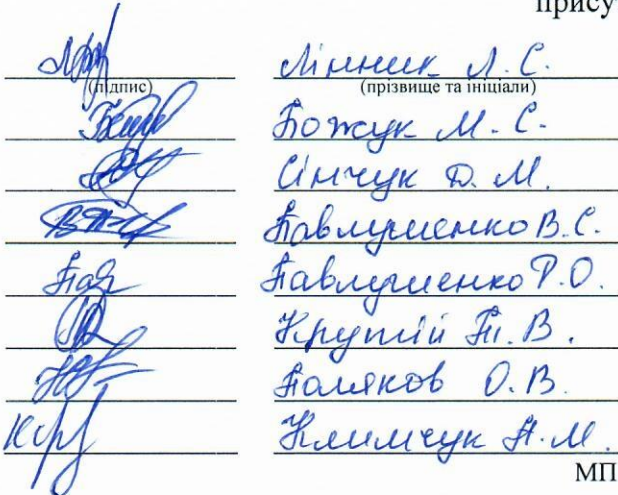 прису
Лінник Л. С.
(підпис) (прізвище та ініціали)
Божук М. С.
Сінчук Д. М.
Павлушенко В. С.
Павлушенко Р. О.
Крутій Т. В.
Поляков О. В.
Климчук А. М.
МП